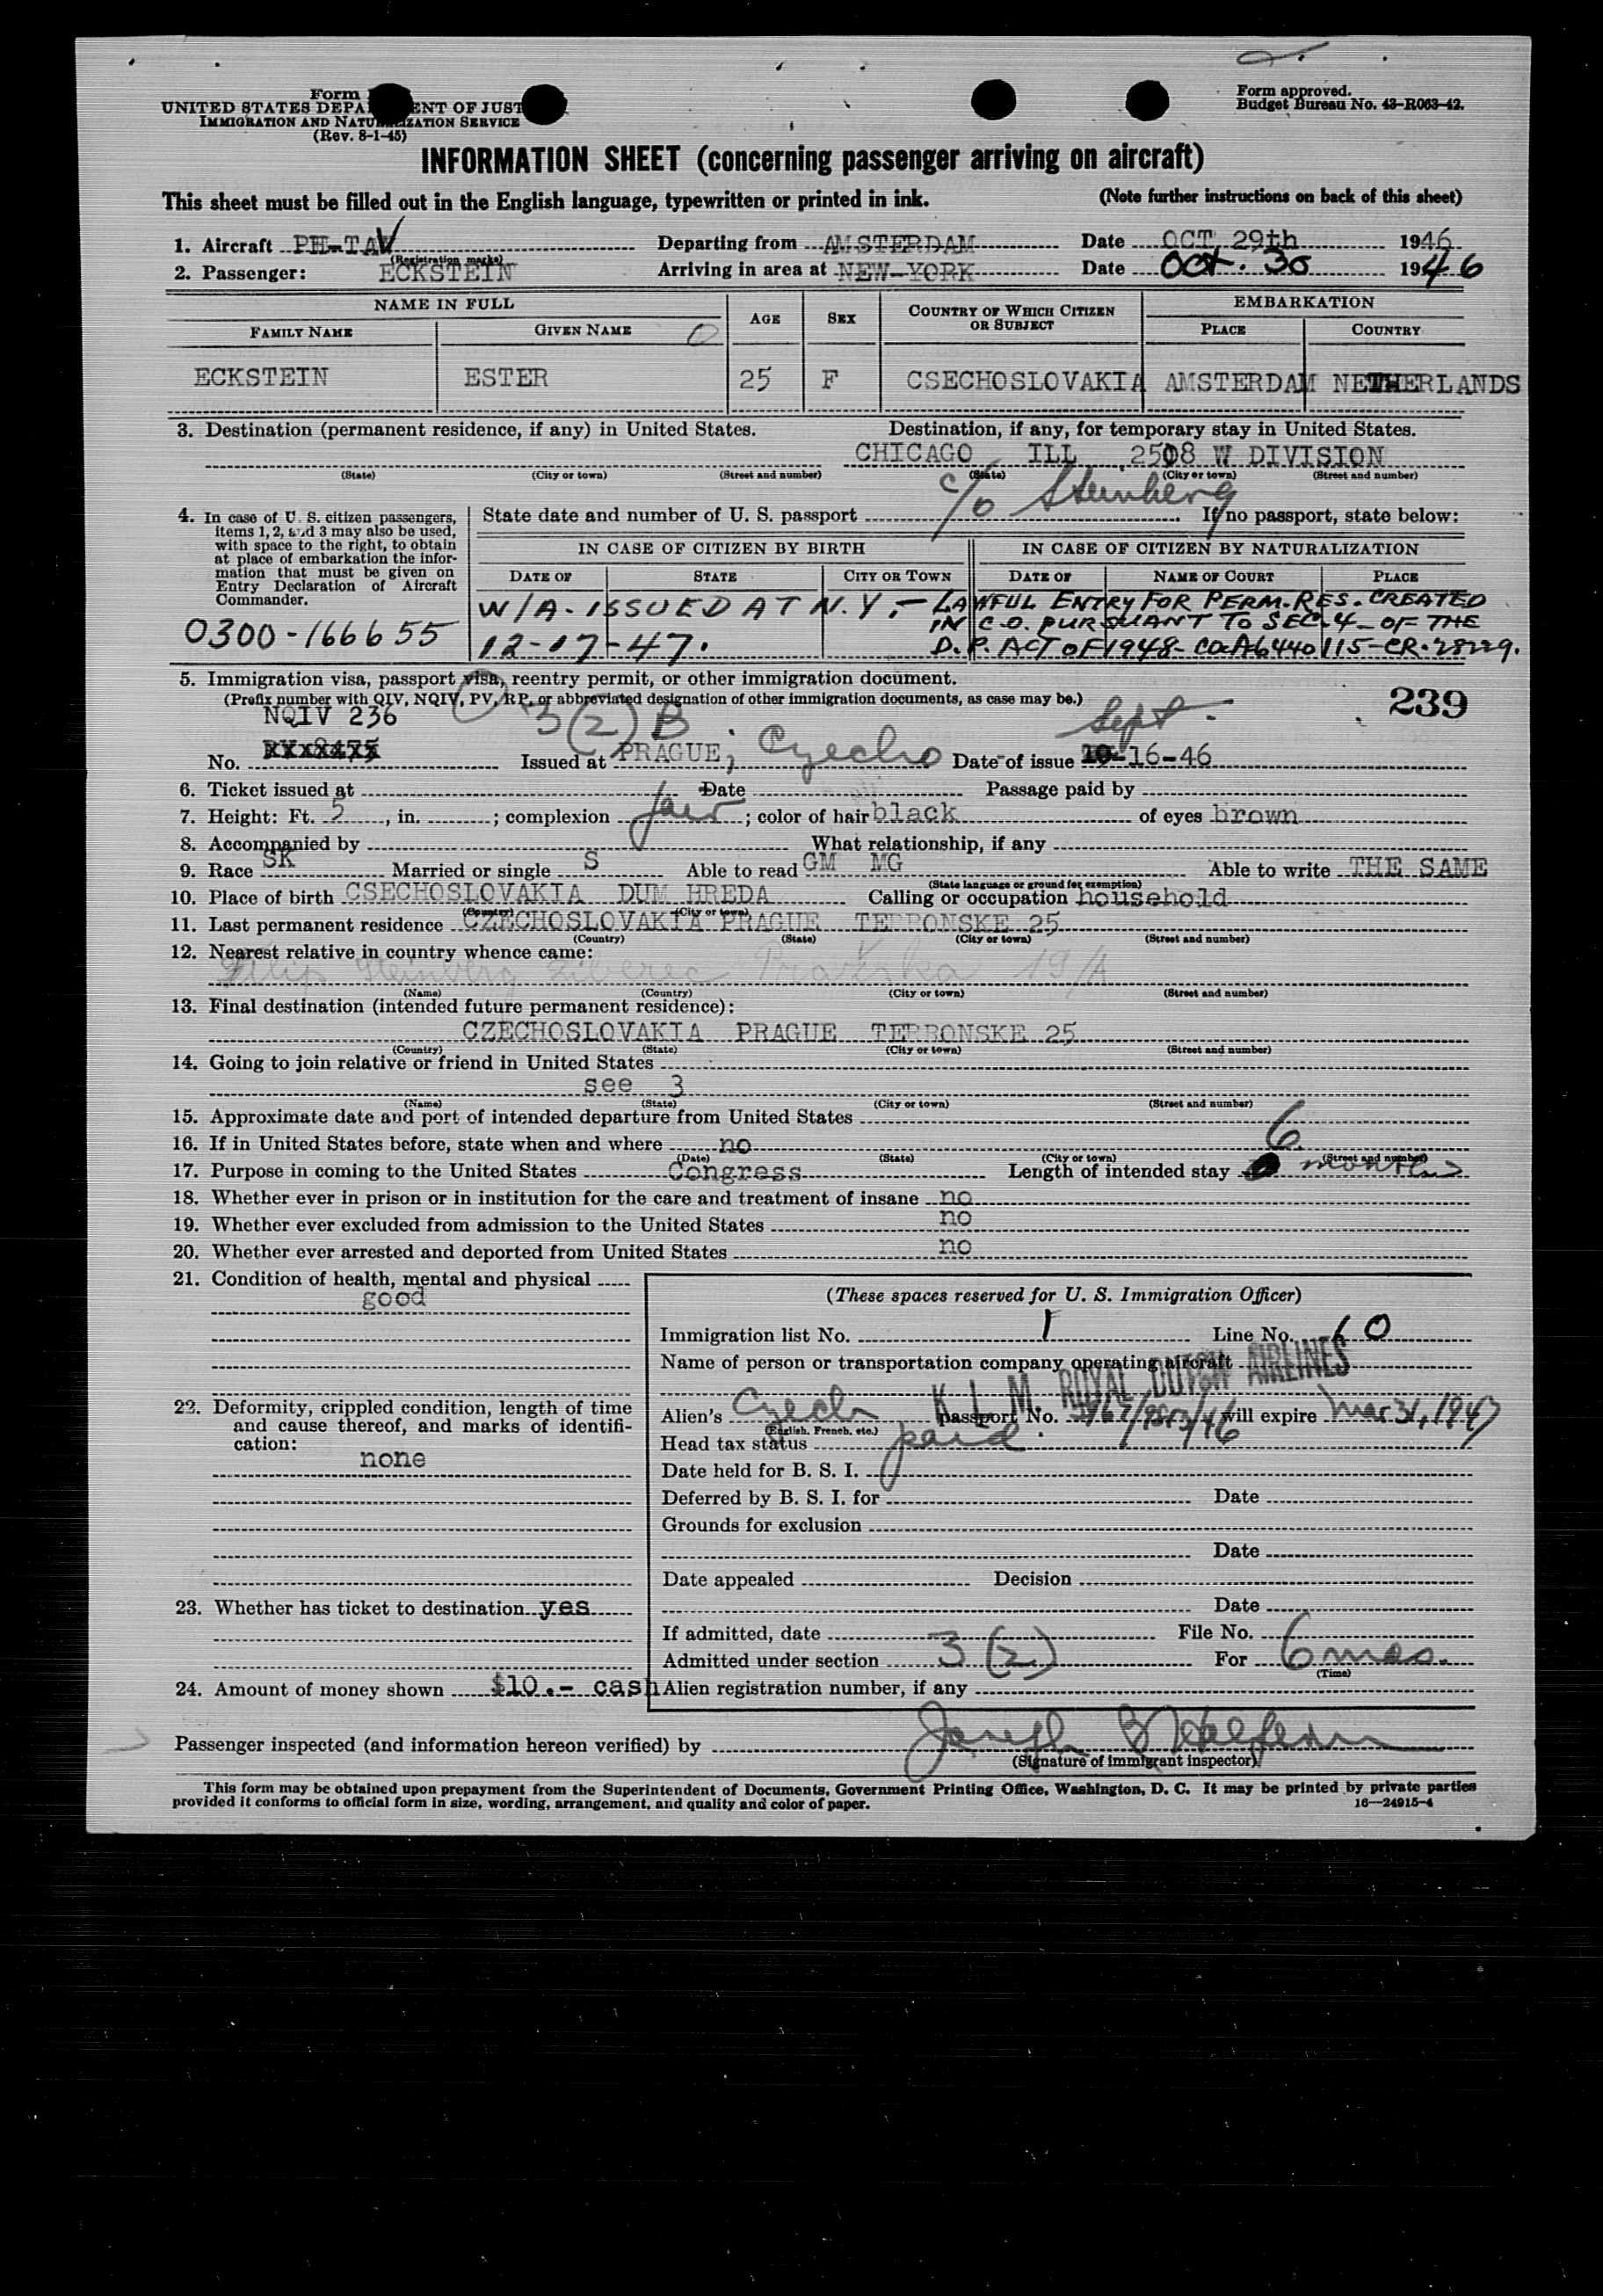 Form
UNITED STATES DEPA ENT OF JUST
IMMIGRATION AND NATU IZATION SERVICE
(Rev. 8-1-45)
Form approved.
Budget Bureau No. 43-R063-42.
INFORMATION SHEET (concerning passenger arriving on aircraft)
This sheet must be filled out in the English language, typewritten or printed in ink. (Note further instructions on back of this sheet)
1. Aircraft PH-TAV Departing from AMSTERDAM Date OCT 29th 1946
(Registration marks)
2. Passenger: ECKSTEIN Arriving in area at NEW-YORK Date Oct. 30 1946
NAME IN FULL AGE SEX COUNTRY OF WHICH CITIZEN OR SUBJECT EMBARKATION
FAMILY NAME GIVEN NAME PLACE COUNTRY
ECKSTEIN ESTER 25 F CSECHOSLOVAKIA AMSTERDAM NETHERLANDS
3. Destination (permanent residence, if any) in United States. Destination, if any, for temporary stay in United States.
CHICAGO ILL 2508 W DIVISION
(State) (City or town) (Street and number) (State) (City or town) (Street and number)
c/o Steinberg
4. In case of U. S. citizen passengers, items 1, 2, and 3 may also be used, with space to the right, to obtain at place of embarkation the information that must be given on Entry Declaration of Aircraft Commander.
State date and number of U. S. passport . If no passport, state below:
IN CASE OF CITIZEN BY BIRTH IN CASE OF CITIZEN BY NATURALIZATION
DATE OF STATE CITY OR TOWN DATE OF NAME OF COURT PLACE
0300-166655
W/A-ISSUED AT N.Y.- LAWFUL ENTRY FOR PERM. RES. CREATED
IN C.O. PURSUANT TO SEC. 4 - OF THE
12-17-47. D.P. ACT OF 1948- CO. A6440115-CR. 28229.
5. Immigration visa, passport visa, reentry permit, or other immigration document.
(Prefix number with QIV, NQIV, PV, RP, or abbreviated designation of other immigration documents, as case may be.)
239
NQIV 236 3(2) B Sept.
No. Issued at PRAGUE, Czecho Date of issue 16-46
6. Ticket issued at Date Passage paid by
7. Height: Ft. 5, in. ; complexion fair; color of hair black of eyes brown
8. Accompanied by What relationship, if any
9. Race SK Married or single S Able to read GM MG Able to write THE SAME
(State language or ground for exemption)
10. Place of birth CSECHOSLOVAKIA DUM HREDA Calling or occupation household
(Country) (City or town)
11. Last permanent residence CZECHOSLOVAKIA PRAGUE TERRONSKE 25
(Country) (State) (City or town) (Street and number)
12. Nearest relative in country whence came:
Filip Steinberg Liberec 19/A
(Name) (Country) (City or town) (Street and number)
13. Final destination (intended future permanent residence):
CZECHOSLOVAKIA PRAGUE TERRONSKE 25
(Country) (State) (City or town) (Street and number)
14. Going to join relative or friend in United States
see 3
(Name) (State) (City or town) (Street and number)
15. Approximate date and port of intended departure from United States
16. If in United States before, state when and where no
(Date) (State) (City or town) (Street and number)
17. Purpose in coming to the United States Congress Length of intended stay 6 months
18. Whether ever in prison or in institution for the care and treatment of insane no
19. Whether ever excluded from admission to the United States no
20. Whether ever arrested and deported from United States no
21. Condition of health, mental and physical
good
22. Deformity, crippled condition, length of time and cause thereof, and marks of identification:
none
23. Whether has ticket to destination yes
24. Amount of money shown $10.- cash
(These spaces reserved for U. S. Immigration Officer)
Immigration list No. 1 Line No. 60
Name of person or transportation company operating aircraft
K. L. M. ROYAL DUTCH AIRLINES
Alien's Czech passport No. will expire Mar 31, 1947
(English, French, etc.)
Head tax status paid.
Date held for B. S. I.
Deferred by B. S. I. for Date
Grounds for exclusion
Date
Date appealed Decision
Date
If admitted, date File No.
Admitted under section 3(2) For 6 mos.
(Time)
Alien registration number, if any
Passenger inspected (and information hereon verified) by Joseph B Halpern
(Signature of immigrant inspector)
This form may be obtained upon prepayment from the Superintendent of Documents, Government Printing Office, Washington, D. C. It may be printed by private parties
provided it conforms to official form in size, wording, arrangement, and quality and color of paper.
16—24915-4